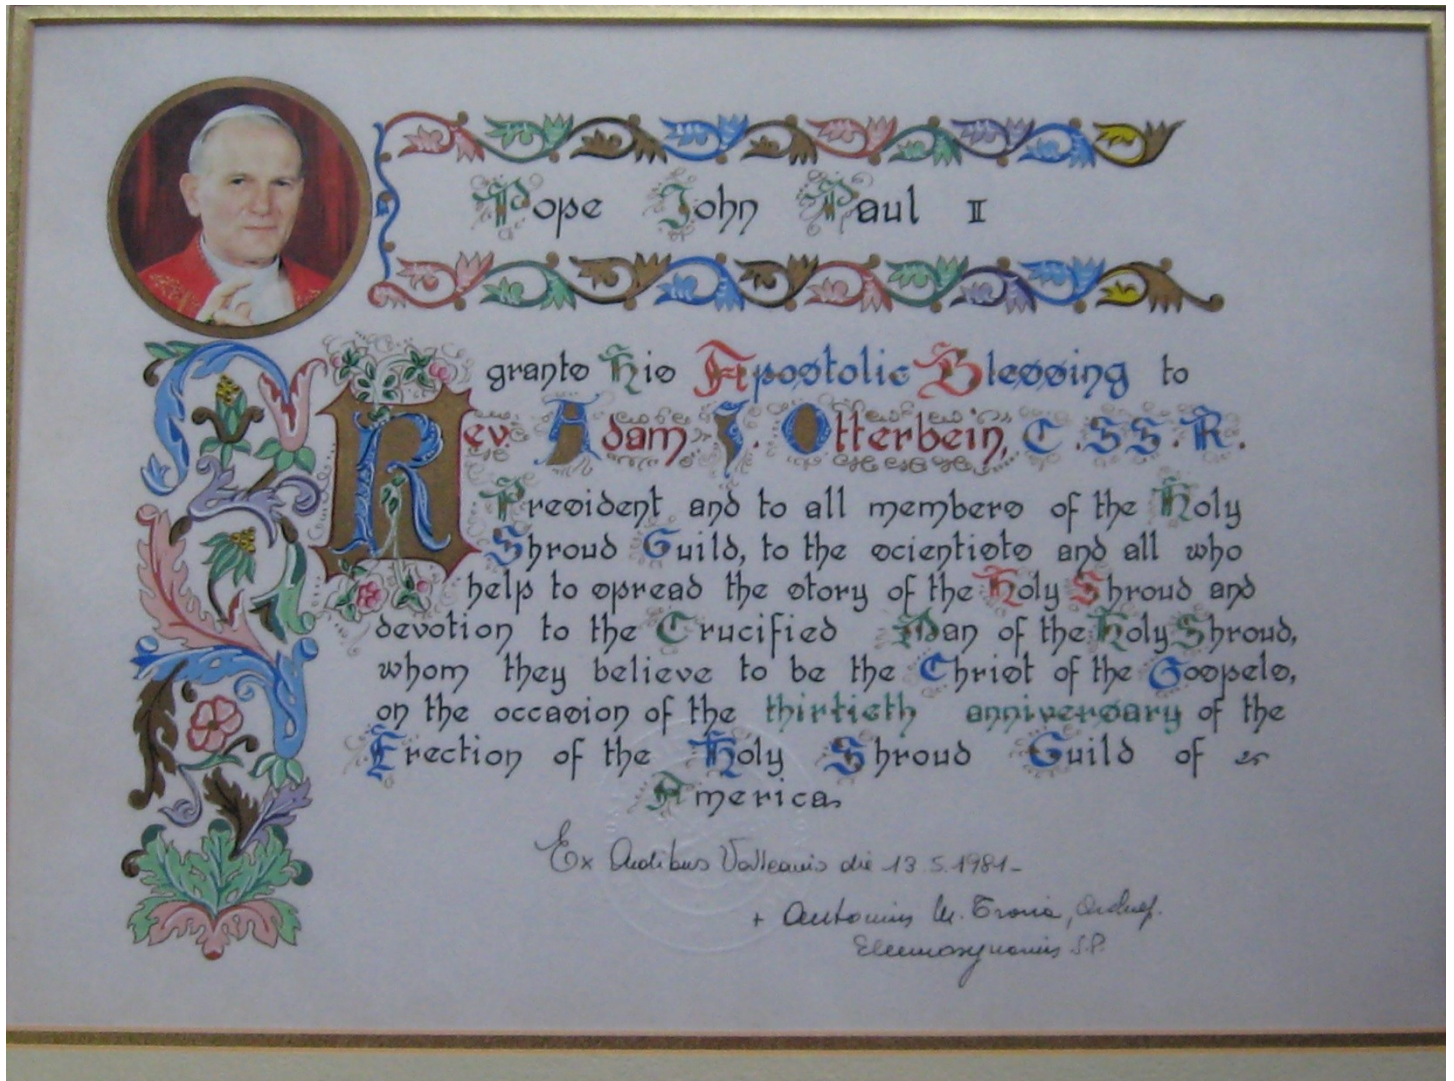 Pope John Paul II
grants His Apostolic Blessing to
Rev. Adam J. Otterbein, C.SS.R.
President and to all members of the Holy
Shroud Guild, to the scientists and all who
help to spread the story of the Holy Shroud and
devotion to the Crucified Man of the Holy Shroud,
whom they believe to be the Christ of the Gospels,
on the occasion of the thirtieth anniversary of the
Erection of the Holy Shroud Guild of
America.
Ex Aedibus Vaticanis die 13.5.1981-
+ Antonius M. Travia,
Eleemosynarius S.P.